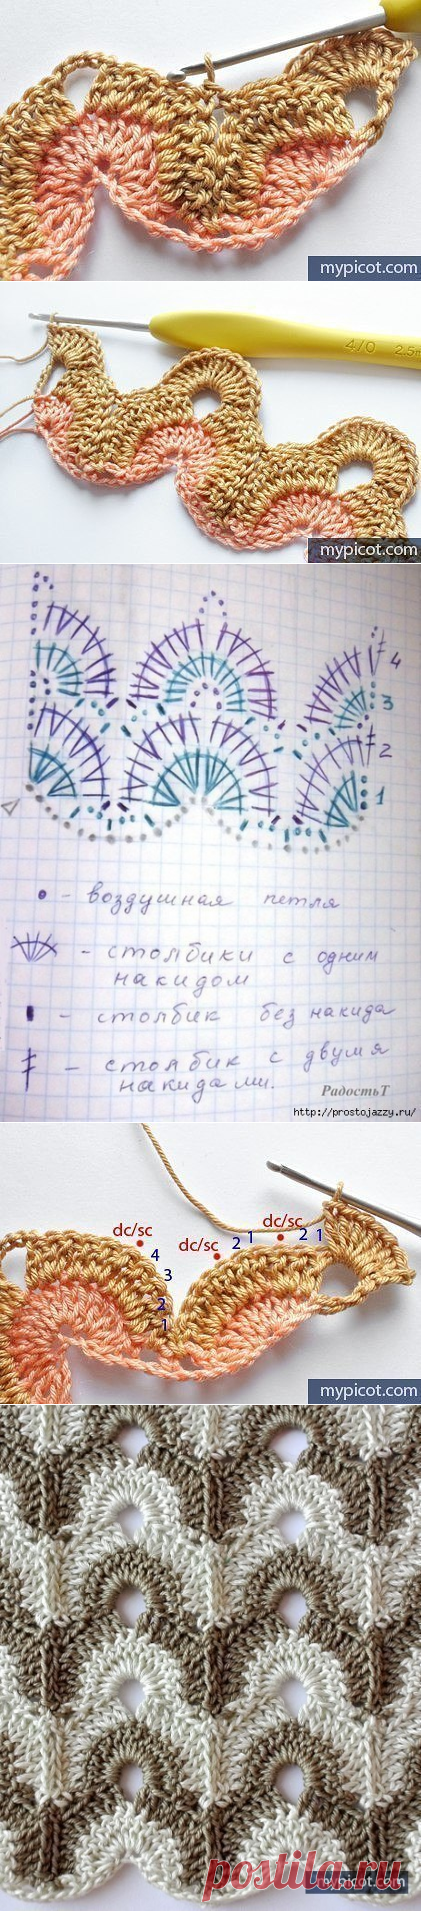 mypicot.com
4/0 2.5m
mypicot.com
4
3
2
1
- воздушная петля
- столбики с одним
накидом
- столбик без накида
- столбик с двумя
накидами.
РадостьТ
http://prostojazzy.ru/
dc/sc
dc/sc
dc/sc
4
3
2
1
2
1
2
1
mypicot.com
mypicot.com
postila.ru